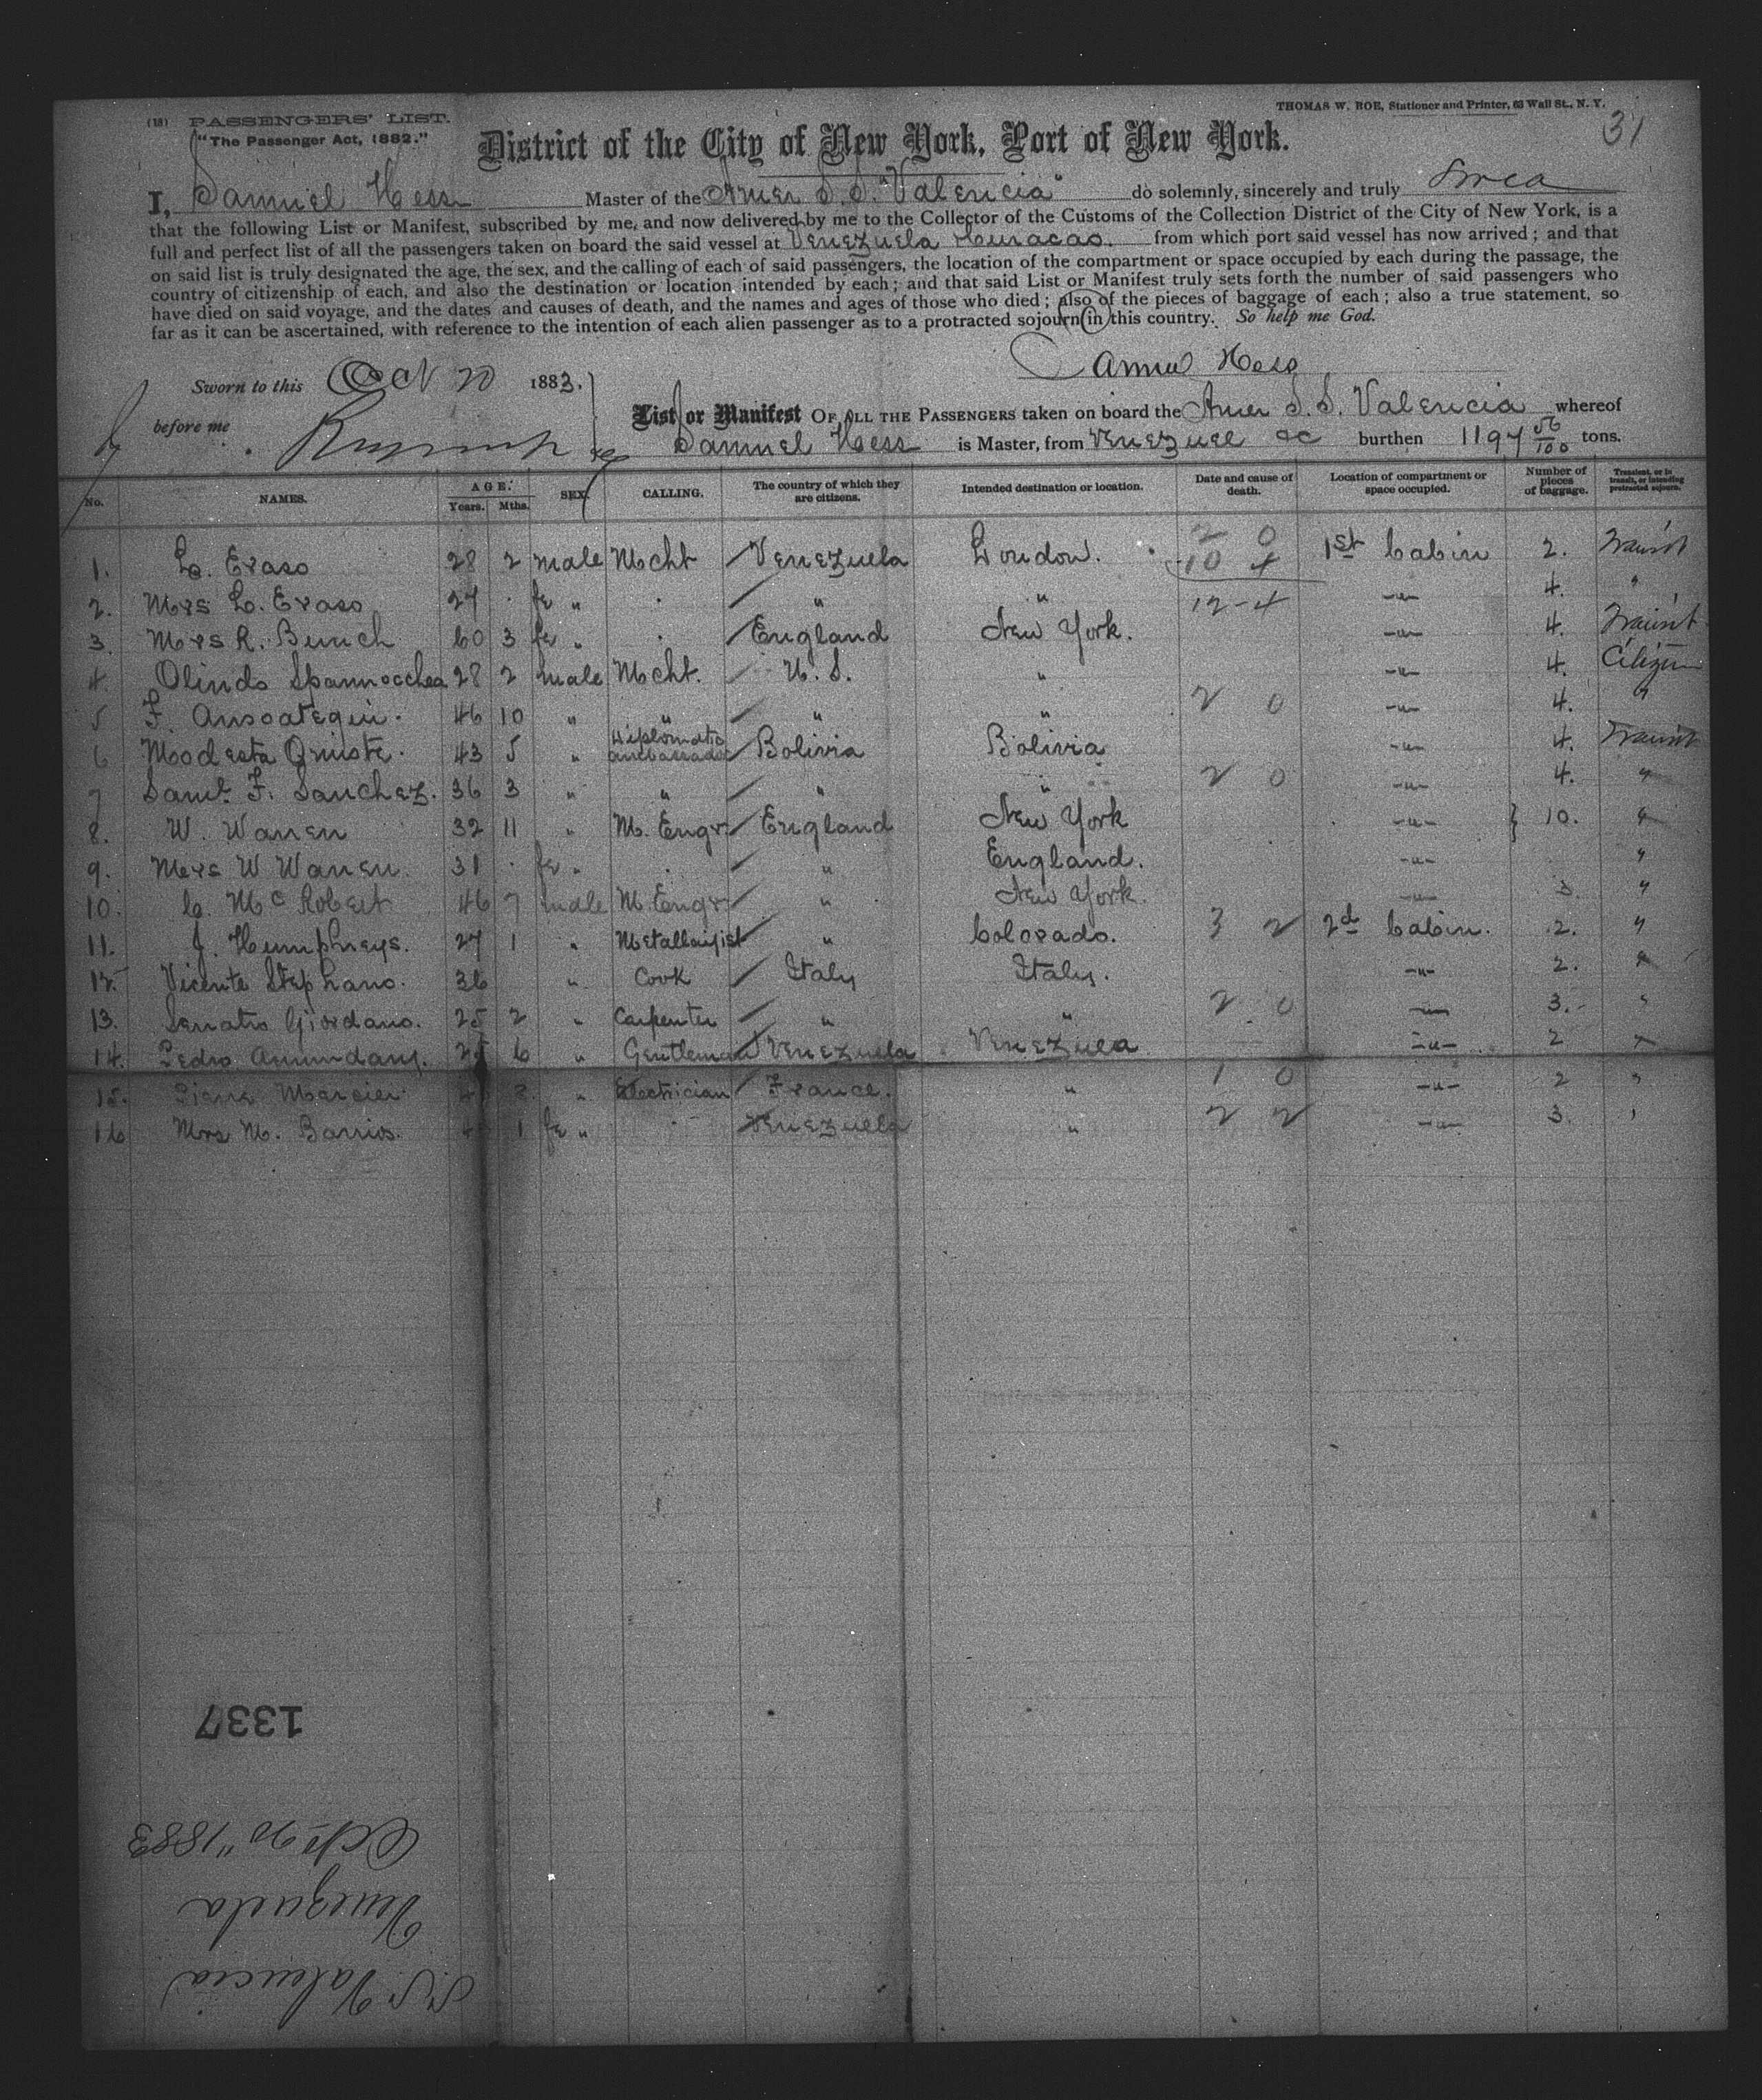 (18) PASSENGERS' LIST.
THOMAS W. ROE, Stationer and Printer, 63 Wall St., N. Y.
"The Passenger Act, 1882."
31
District of the City of New York, Port of New York.
I, Samuel Hess Master of the Amer S. S. "Valencia" do solemnly, sincerely and truly Swea
that the following List or Manifest, subscribed by me, and now delivered by me to the Collector of the Customs of the Collection District of the City of New York, is a
full and perfect list of all the passengers taken on board the said vessel at Venezuela & Curacao. from which port said vessel has now arrived; and that
on said list is truly designated the age, the sex, and the calling of each of said passengers, the location of the compartment or space occupied by each during the passage, the
country of citizenship of each, and also the destination or location intended by each; and that said List or Manifest truly sets forth the number of said passengers who
have died on said voyage, and the dates and causes of death, and the names and ages of those who died; also of the pieces of baggage of each; also a true statement, so
far as it can be ascertained, with reference to the intention of each alien passenger as to a protracted sojourn in this country. So help me God.
Samuel Hess
Sworn to this Oct 20 1883.
before me
List or Manifest OF ALL THE PASSENGERS taken on board the Amer S. S. Valencia whereof
Samuel Hess is Master, from Venezuel &c burthen 1197 56/100 tons.
No. NAMES. AGE. Years. Mths. SEX. CALLING. The country of which they are citizens. Intended destination or location. Date and cause of death. Location of compartment or space occupied. Number of pieces of baggage. Transient, or in transit, or intending protracted sojourn.
1. L. Eraso 28 2 male Mcht Venezuela London. 2 0 10 4 1st Cabin 2. Transit
2. Mrs L. Eraso 27 fe " " " 12-4 -"- 4. "
3. Mrs R. Bunch 60 3 fe " England New York. -"- 4. Transit
4. Olindo Spannocchea 28 2 male Mcht. U. S. " -"- 4. Citizen
5 F. Ansoategui. 46 10 " " " " 2 0 -"- 4. "
6 Modesta Omiste. 43 5 " diplomatic ambassador Bolivia Bolivia -"- 4. Transit
7 Saml. F. Sanchez. 36 3 " " " " 2 0 -"- 4. "
8. W. Warren 32 11 " M. Engr England New York -"- } 10. "
9. Mrs W Warren. 31 fe " " England. -"- "
10. C. McRobert 46 7 male M. Engr " New York. -"- 3. "
11. J. Humphreys. 27 1 " Metallurgist " Colorado. 3 2 2d Cabin. 2. "
12. Vicente Stephano. 36 " Cook Italy Italy. -"- 2. "
13. Senatro Giordano. 25 2 " Carpenter " " 2 0 -"- 3. "
14. Pedro 6 " Gentleman Venezuela Venezuela -"- 2 "
15. Pierre Mercier 8 " Electrician France. " 1 0 -"- 2 "
16 Mrs M. Barrios. 1 fe " Venezuela " 2 2 -"- 3. "
1337
S.S. Valencia
Venezuela
Oct 20" 1883